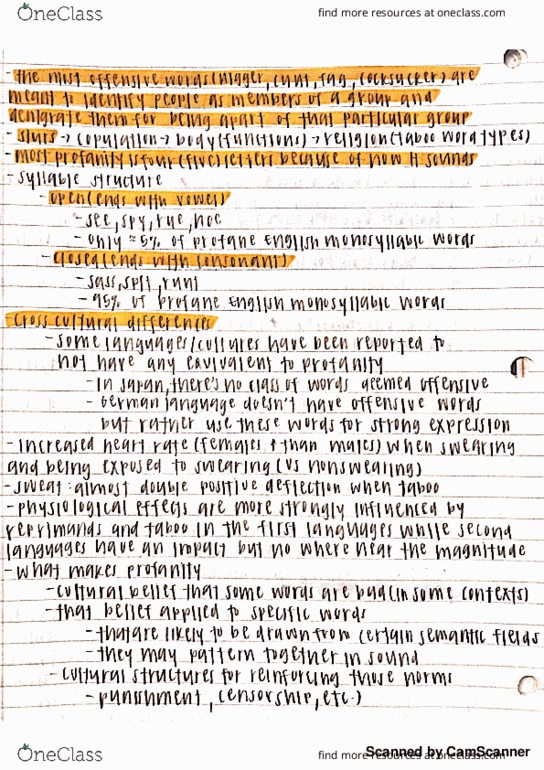 OneClass
find more resources at oneclass.com
- the most offensive words (nigger, cunt, fag, cocksucker) are
meant to identify people as members of a group and
denigrate them for being apart of that particular group
- slurs → copulation → body (functions) → religion (taboo word types)
- most profanity is four (five) letters because of how it sounds
- syllable structure
- open (ends with vowel)
- see, spy, rye, hoe
- only ≈ 5% of profane English monosyllabic words
- closed (ends with consonant)
- sass, spit, runt
- 95% of profane English monosyllabic words
cross cultural differences
- some languages/cultures have been reported to
not have any equivalent to profanity
- in Japan, there's no class of words deemed offensive
- German language doesn't have offensive words
but rather use these words for strong expression
- increased heart rate (females ↑ than males) when swearing
and being exposed to swearing (vs nonswearing)
- sweat: almost double positive deflection when taboo
- physiological effects are more strongly influenced by
reprimands and taboo in the first languages while second
languages have an impact but no where near the magnitude
- what makes profanity
- cultural belief that some words are bad (in some contexts)
- that belief applied to specific words
- that are likely to be drawn from certain semantic fields
- they may pattern together in sound
- cultural structures for reinforcing those norms
- punishment, censorship, etc.)
OneClass
find more resources at oneclass.com
Scanned by CamScanner